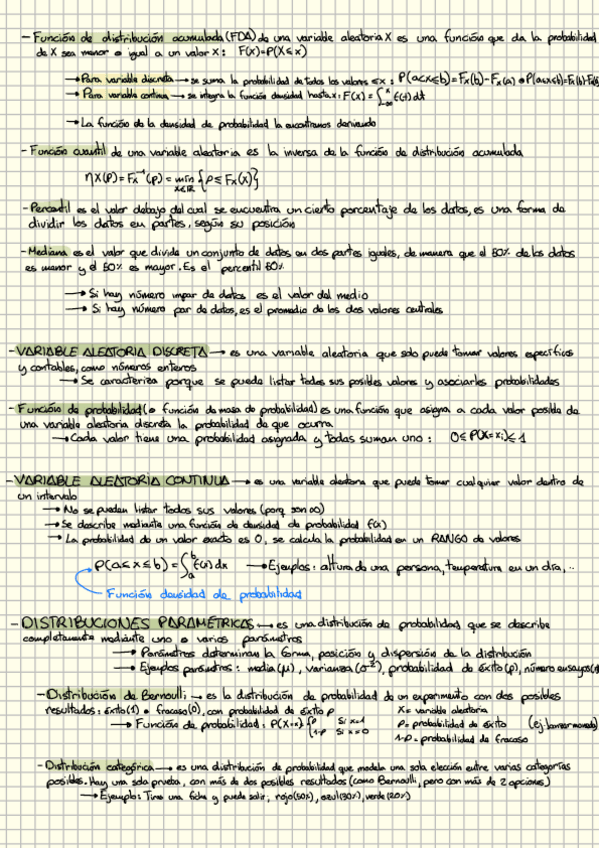 - Función de distribución acumulada (FDA) de una variable aleatoria X es una función que da la probabilidad
de X sea menor o igual a un valor x: F(x)=P(X≤x)
→ Para variable discreta → se suma la probabilidad de todos los valores ≤x: P(a<x≤b)=Fx(b)-Fx(a)
→ Para variable continua → se integra la función densidad hasta x: F(x)=∫_{-∞}^{x} f(t)dt
→ La función de la densidad de probabilidad la encontramos derivando
- Función cuantil de una variable aleatoria es la inversa de la función de distribución acumulada
ηX(p)=Fx⁻¹(p)=min_{x∈ℝ} {p≤Fx(x)}
- Percentil es el valor debajo del cual se encuentra un cierto porcentaje de los datos, es una forma de
dividir los datos en partes, según su posición
- Mediana es el valor que divide un conjunto de datos en dos partes iguales, de manera que el 50% de los datos
es menor y el 50% es mayor. Es el percentil 50%
→ Si hay número impar de datos es el valor del medio
→ Si hay número par de datos, es el promedio de los dos valores centrales
- VARIABLE ALEATORIA DISCRETA → es una variable aleatoria que solo puede tomar valores específicos
y contables, como números enteros
→ Se caracteriza porque se puede listar todos sus posibles valores y asociarles probabilidades
- Función de probabilidad (o función de masa de probabilidad) es una función que asigna a cada valor posible de
una variable aleatoria discreta la probabilidad de que ocurra
→ Cada valor tiene una probabilidad asignada y todas suman uno: 0≤P(X=xi)≤1
- VARIABLE ALEATORIA CONTINUA → es una variable aleatoria que puede tomar cualquier valor dentro de
un intervalo
→ No se pueden listar todos sus valores (porq son ∞)
→ Se describe mediante una función de densidad de probabilidad f(x)
→ La probabilidad de un valor exacto es 0, se calcula la probabilidad en un RANGO de valores
P(a≤x≤b)=∫_{a}^{b} f(x)dx → Ejemplos: altura de una persona, temperatura en un día, ..
Función densidad de probabilidad
- DISTRIBUCIONES PARAMÉTRICAS → es una distribución de probabilidad que se describe
completamente mediante uno o varios parámetros
→ Parámetros determinan la forma, posición y dispersión de la distribución
→ Ejemplos parámetros: media (μ), varianza (σ²), probabilidad de éxito (p), número ensayos
- Distribución de Bernoulli → es la distribución de probabilidad de un experimento con dos posibles
resultados: éxito (1) o fracaso (0), con probabilidad de éxito p X= variable aleatoria
→ Función de probabilidad: P(X=x) { p si x=1 p= probabilidad de éxito (ej lanzar moneda)
1-p si x=0 1-p= probabilidad de fracaso
- Distribución categórica → es una distribución de probabilidad que modela una sola elección entre varias categorías
posibles. Hay una sola prueba, con más de dos posibles resultados (como Bernoulli, pero con más de 2 opciones)
→ Ejemplo: Tiras una ficha y puede salir, rojo (50%), azul (30%), verde (20%)